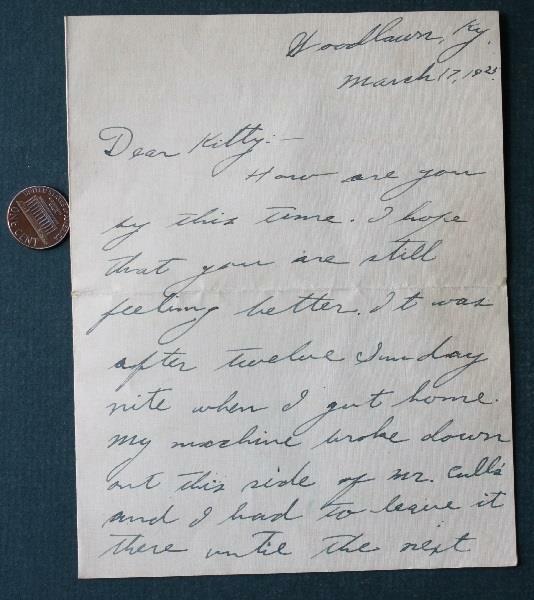 Woodlawn, Ky.
March 17, 1925.
Dear Kitty:—
How are you
by this time. I hope
that you are still
feeling better. It was
after twelve Sunday
nite when I got home.
My machine broke down
out this side of Mr. Cull's
and I had to leave it
there until the next
ONE CENT